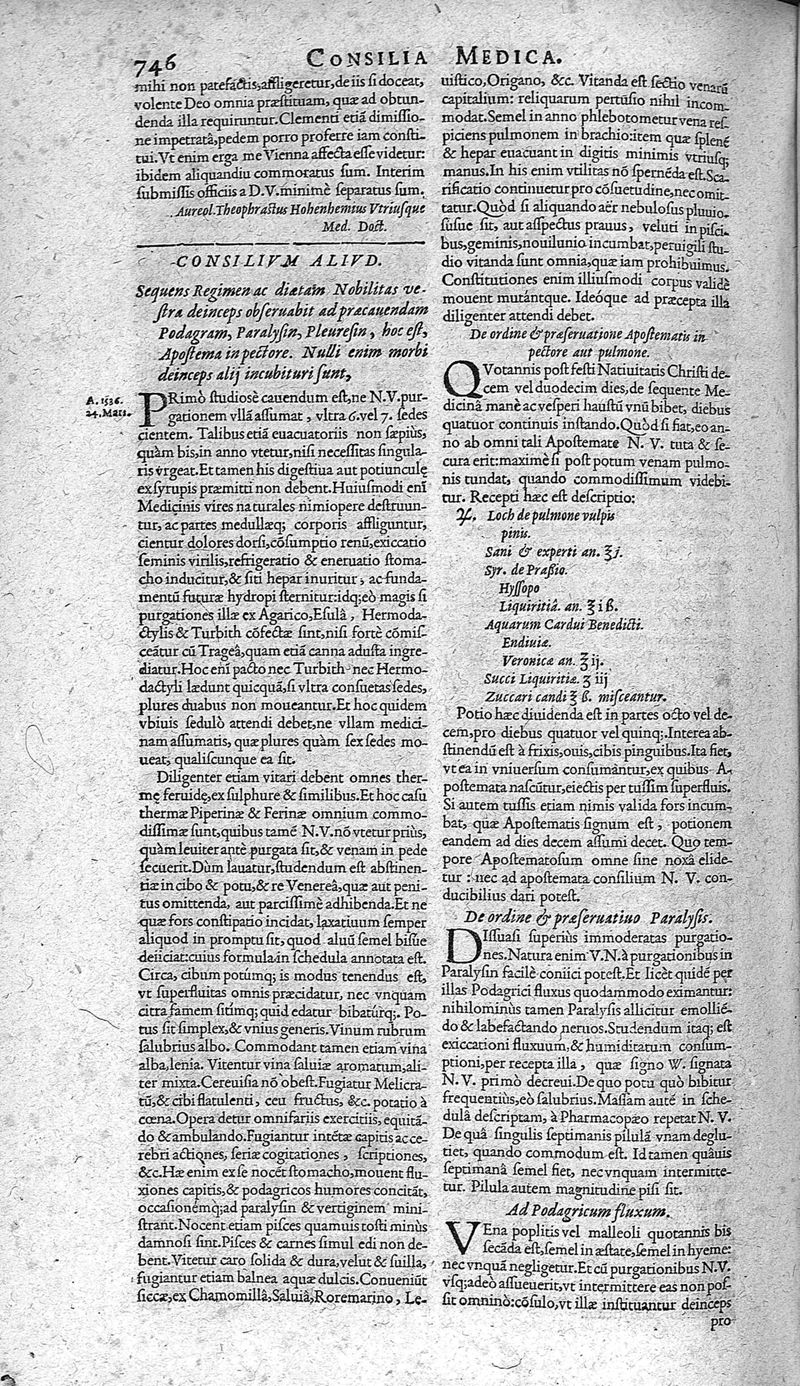 746 CONSILIA MEDICA.
mihi non patefactis, affligeretur, de iis si doceat,
volente Deo omnia præstituam, quæ ad obtun-
denda illa requiruntur. Clementi etiã dimissio-
ne impetratâ, pedem porro proferre iam consti-
tui. Vt enim erga me Vienna affecta esse videtur:
ibidem aliquandiu commoratus sum. Interim
submissis officiis a D.V. minimè separatus sum.
Aureol. Theophrastus Hohenhemius Vtriusque
Med. Doct.
CONSILIVM ALIVD.
Sequens Regimen ac diætam Nobilitas ve-
stra deinceps obseruabit ad præcauendam
Podagram, Paralysin, Pleuresin, hoc est,
Apostema in pectore. Nulli enim morbi
deinceps alij incubituri sunt,
A. 1536.
24. Maii.
PRimò studiosè cauendum est, ne N.V. pur-
gationem vllã assumat, vltra 6. vel 7. sedes
cientem. Talibus etiã euacuatoriis non sæpiùs,
quàm bis, in anno vtetur, nisi necessitas singula-
ris vrgeat. Et tamen his digestiua aut potiunculę
ex syrupis præmitti non debent. Huiusmodi enĩ
Medicinis vires naturales nimiopere destruun-
tur, ac partes medullæq; corporis affliguntur,
cientur dolores dorsi, cõsumptio renũ, exiccatio
seminis virilis, refrigeratio & eneruatio stoma-
cho inducitur, & siti hepar inuritur, ac funda-
mentũ futuræ hydropi sternitur: idq; eò magis si
purgationes illæ ex Agarico, Esulâ, Hermoda-
ctylis & Turbith cõfectæ sint, nisi fortè cõmis-
ceãtur cũ Trageâ, quam etiã canna adusta ingre-
diatur. Hoc enĩ pacto nec Turbith nec Hermo-
dactyli lædunt quicquã, si vltra consuetas sedes,
plures duabus non moueantur. Et hoc quidem
vbiuis sedulò attendi debet, ne vllam medici-
nam assumatis, quæ plures quàm sex sedes mo-
ueat, qualiscunque ea sit.
Diligenter etiam vitari debent omnes ther-
mę feruidę, ex sulphure & similibus. Et hoc casu
thermæ Piperinæ & Ferinæ omnium commo-
dissimæ sunt, quibus tamẽ N.V. nõ vtetur priùs,
quàm leuiter antè purgata sit, & venam in pede
secuerit. Dùm lauatur, studendum est abstinen-
tiæ in cibo & potu, & re Venereâ, quæ aut peni-
tus omittenda, aut parcissimè adhibenda. Et ne
quæ fors constipatio incidat, laxatiuum semper
aliquod in promptu sit, quod aluũ semel bisúe
deiiciat: cuius formula in schedula annotata est.
Circa, cibum potúmq; is modus tenendus est,
vt superfluitas omnis præcidatur, nec vnquam
citra famem sitimq; quid edatur bibatúrq;. Po-
tus sit simplex, & vnius generis. Vinum rubrum
salubrius albo. Commodant tamen etiam vina
alba, lenia. Vitentur vina saluiæ aromatum, ali-
ter mixta. Cereuisia nõ obest. Fugiatur Melicra-
tũ, & cibi flatulenti, ceu fructus, &c. potatio à
cœna. Opera detur omnifariis exercitiis, equitã-
do & ambulando. Fugiantur intẽtæ capitis ac ce-
rebri actiones, seriæ cogitationes, scriptiones,
&c. Hæ enim ex se nocẽt stomacho, mouent flu-
xiones capitis, & podagricos humores concitãt,
occasionémq; ad paralysin & vertiginem mini-
strant. Nocent etiam pisces quamuis tosti minùs
damnosi sint. Pisces & carnes simul edi non de-
bent. Vitetur caro solida & dura, velut & suilla,
fugiantur etiam balnea aquæ dulcis. Conueniũt
siccæ, ex Chamomillâ, Saluiâ, Roremarino, Le-
uistico, Origano, &c. Vitanda est sectio venarũ
capitalium: reliquarum pertusio nihil incom-
modat. Semel in anno phlebotometur vena res-
piciens pulmonem in brachio: item quæ splenẽ
& hepar euacuant in digitis minimis vtriusq;
manus. In his enim vtilitas nõ spernẽda est. Sca-
rificatio continuetur pro cõsuetudine, nec omit-
tatur. Quòd si aliquando aër nebulosus pluuio-
súsue sit, aut asspectus prauus, veluti in pisci-
bus, geminis, nouilunio incumbat, peruigili stu-
dio vitanda sunt omnia, quæ iam prohibuimus.
Constitutiones enim illiusmodi corpus validè
mouent mutántque. Ideóque ad præcepta illa
diligenter attendi debet.
De ordine & præseruatione Apostematis in
pectore aut pulmone.
QVotannis post festi Natiuitatis Christi de-
cem vel duodecim dies, de sequente Me-
dicinâ manè ac vesperi haustũ vnũ bibet, diebus
quatuor continuis instando. Quòd si fiat, eo an-
no ab omni tali Apostemate N. V. tuta & se-
cura erit: maximè si post potum venam pulmo-
nis tundat, quando commodissimum videbi-
tur. Recepti hæc est descriptio:
℞. Loch de pulmone vulpis
pinus.
Sani & experti an. ℥j.
Syr. de Prassio.
Hyssopo
Liquiritiâ. an. ℥ i ß.
Aquarum Cardui Benedicti.
Endiuiæ.
Veronicæ an. ℥ ij.
Succi Liquiritiæ. ʒ iij
Zuccari candi ℥ ß. misceantur.
Potio hæc diuidenda est in partes octo vel de-
cem, pro diebus quatuor vel quinq;. Interea ab-
stinendũ est à frixis, ouis, cibis pinguibus. Ita fiet,
vt ea in vniuersum consumãntur, ex quibus A-
postemata nascũtur, eiectis per tussim superfluis.
Si autem tussis etiam nimis valida fors incum-
bat, quæ Apostematis signum est, potionem
eandem ad dies decem assumi decet. Quo tem-
pore Apostematosum omne sine noxâ elide-
tur: nec ad apostemata consilium N. V. con-
ducibilius dari potest.
De ordine & præseruatiuo Paralysis.
DIssuasi superiùs immoderatas purgatio-
nes. Natura enim V.N. à purgationibus in
Paralysin facilè coniici potest. Et licèt quidẽ per
illas Podagrici fluxus quodammodo eximantur:
nihilominùs tamen Paralysis allicitur emolliẽ-
do & labefactando neruos. Studendum itaq; est
exiccationi fluxuum, & humiditatum consum-
ptioni, per recepta illa, quæ signo W. signata
N. V. primò decreui. De quo potu quò bibitur
frequentiùs, eò salubrius. Massam autẽ in sche-
dulâ descriptam, à Pharmacopæo repetat N. V.
De quâ singulis septimanis pilulã vnam deglu-
tiet, quando commodum est. Id tamen quãuis
septimanâ semel fiet, nec vnquam intermitte-
tur. Pilula autem magnitudine pisi sit.
Ad Podagricum fluxum.
VEna poplitis vel malleoli quotannis bis
secãda est, semel in æstate, semel in hyeme:
nec vnquã negligetur. Et cũ purgationibus N.V.
vsq; adeò assueuerit, vt intermittere eas non pos-
sit omninò: cõsulo, vt illæ instituantur deinceps
pro